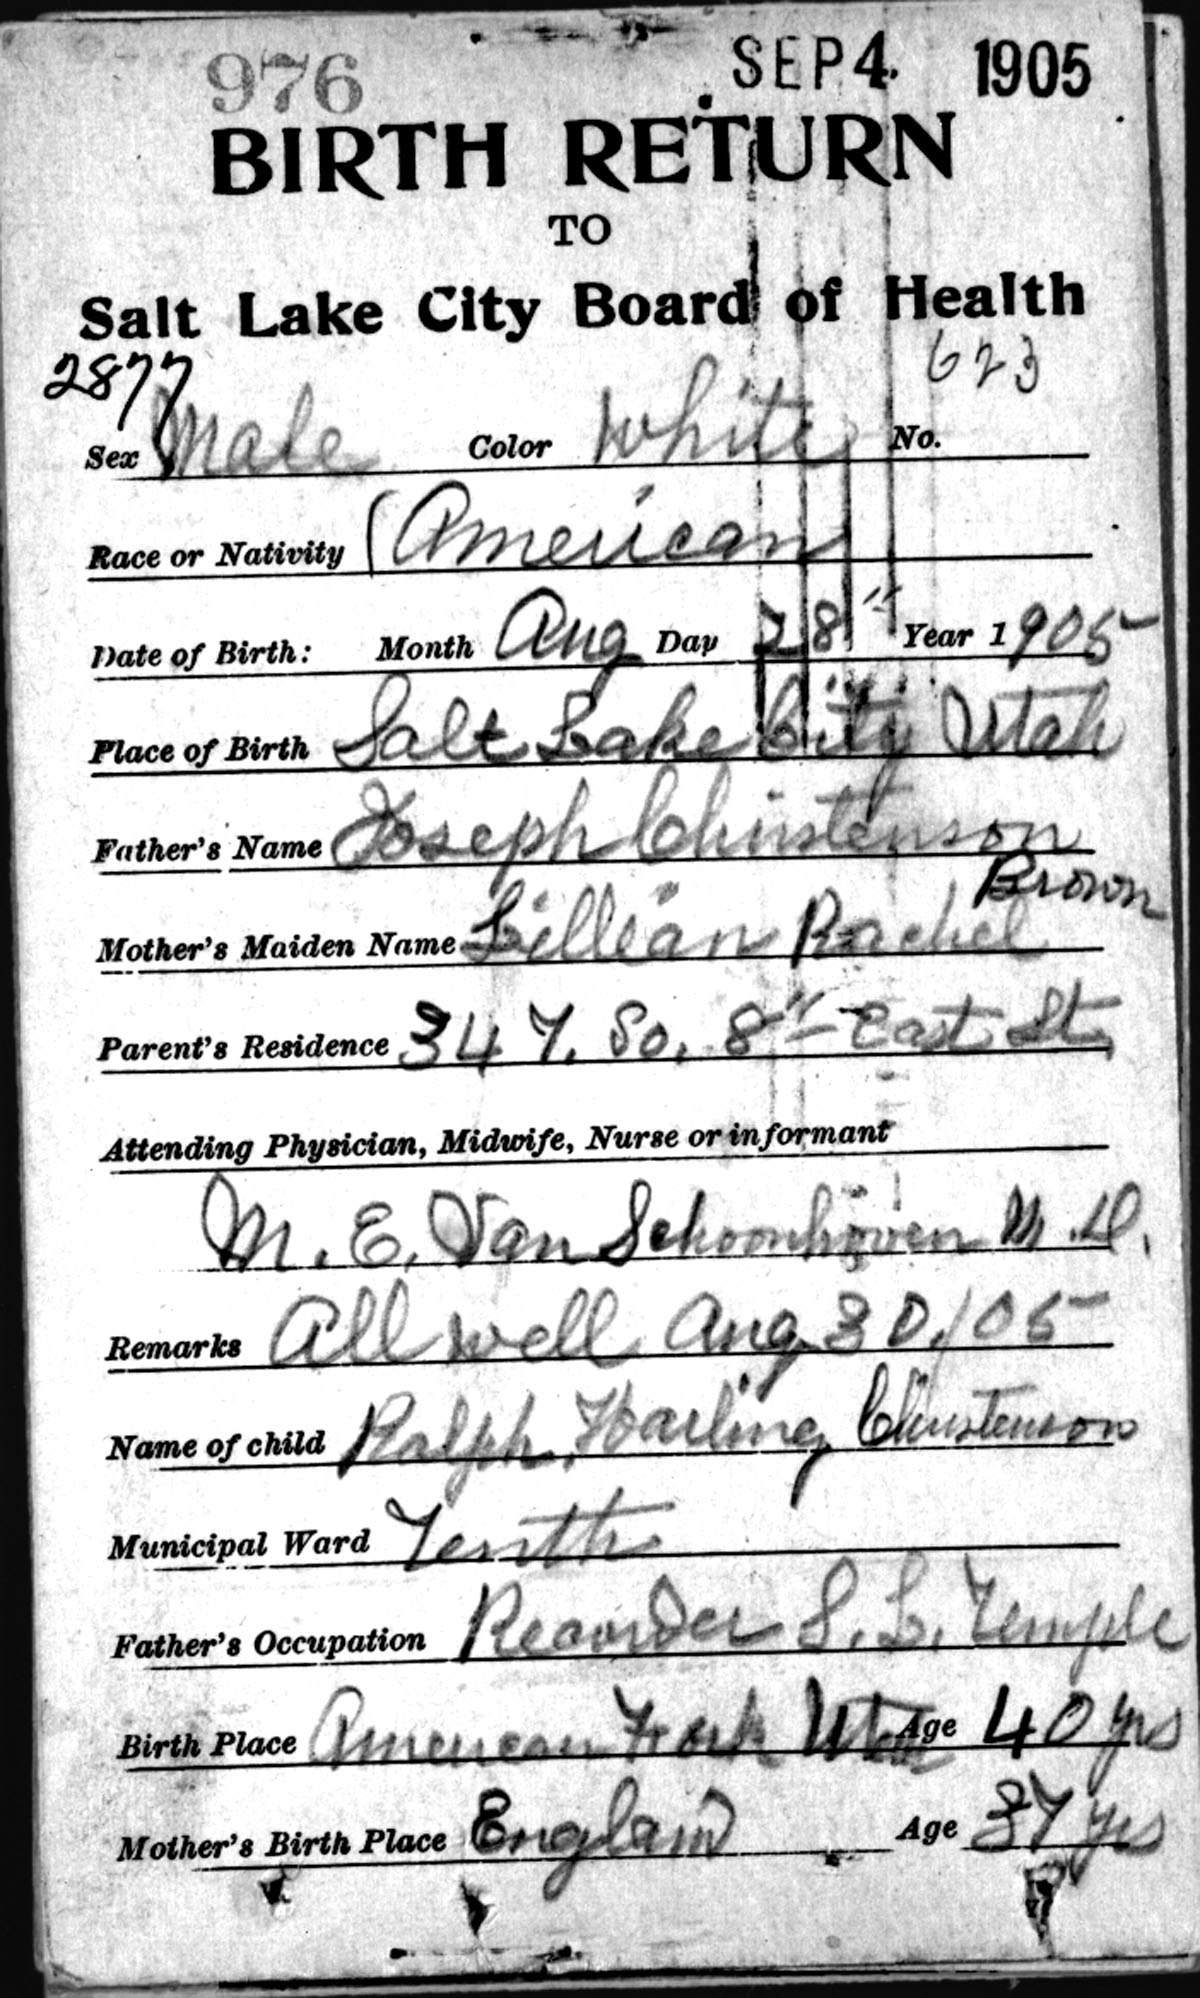 976 SEP 4. 1905
BIRTH RETURN
TO
Salt Lake City Board of Health
2877 623
Sex Male Color White No.
Race or Nativity American
Date of Birth: Month Aug Day 28" Year 1905
Place of Birth Salt Lake City Utah
Father's Name Joseph Christenson
Brown
Mother's Maiden Name Lillian Rachel
Parent's Residence 347. So. 8" East St.
Attending Physician, Midwife, Nurse or informant
M. E. Van Schoonhoven M.D.
Remarks All well Aug 30/05
Name of child Ralph Harling Christenson
Municipal Ward Tenth
Father's Occupation Recorder S. L. Temple
Birth Place American Fork Utah Age 40 yrs
Mother's Birth Place England Age 37 yrs